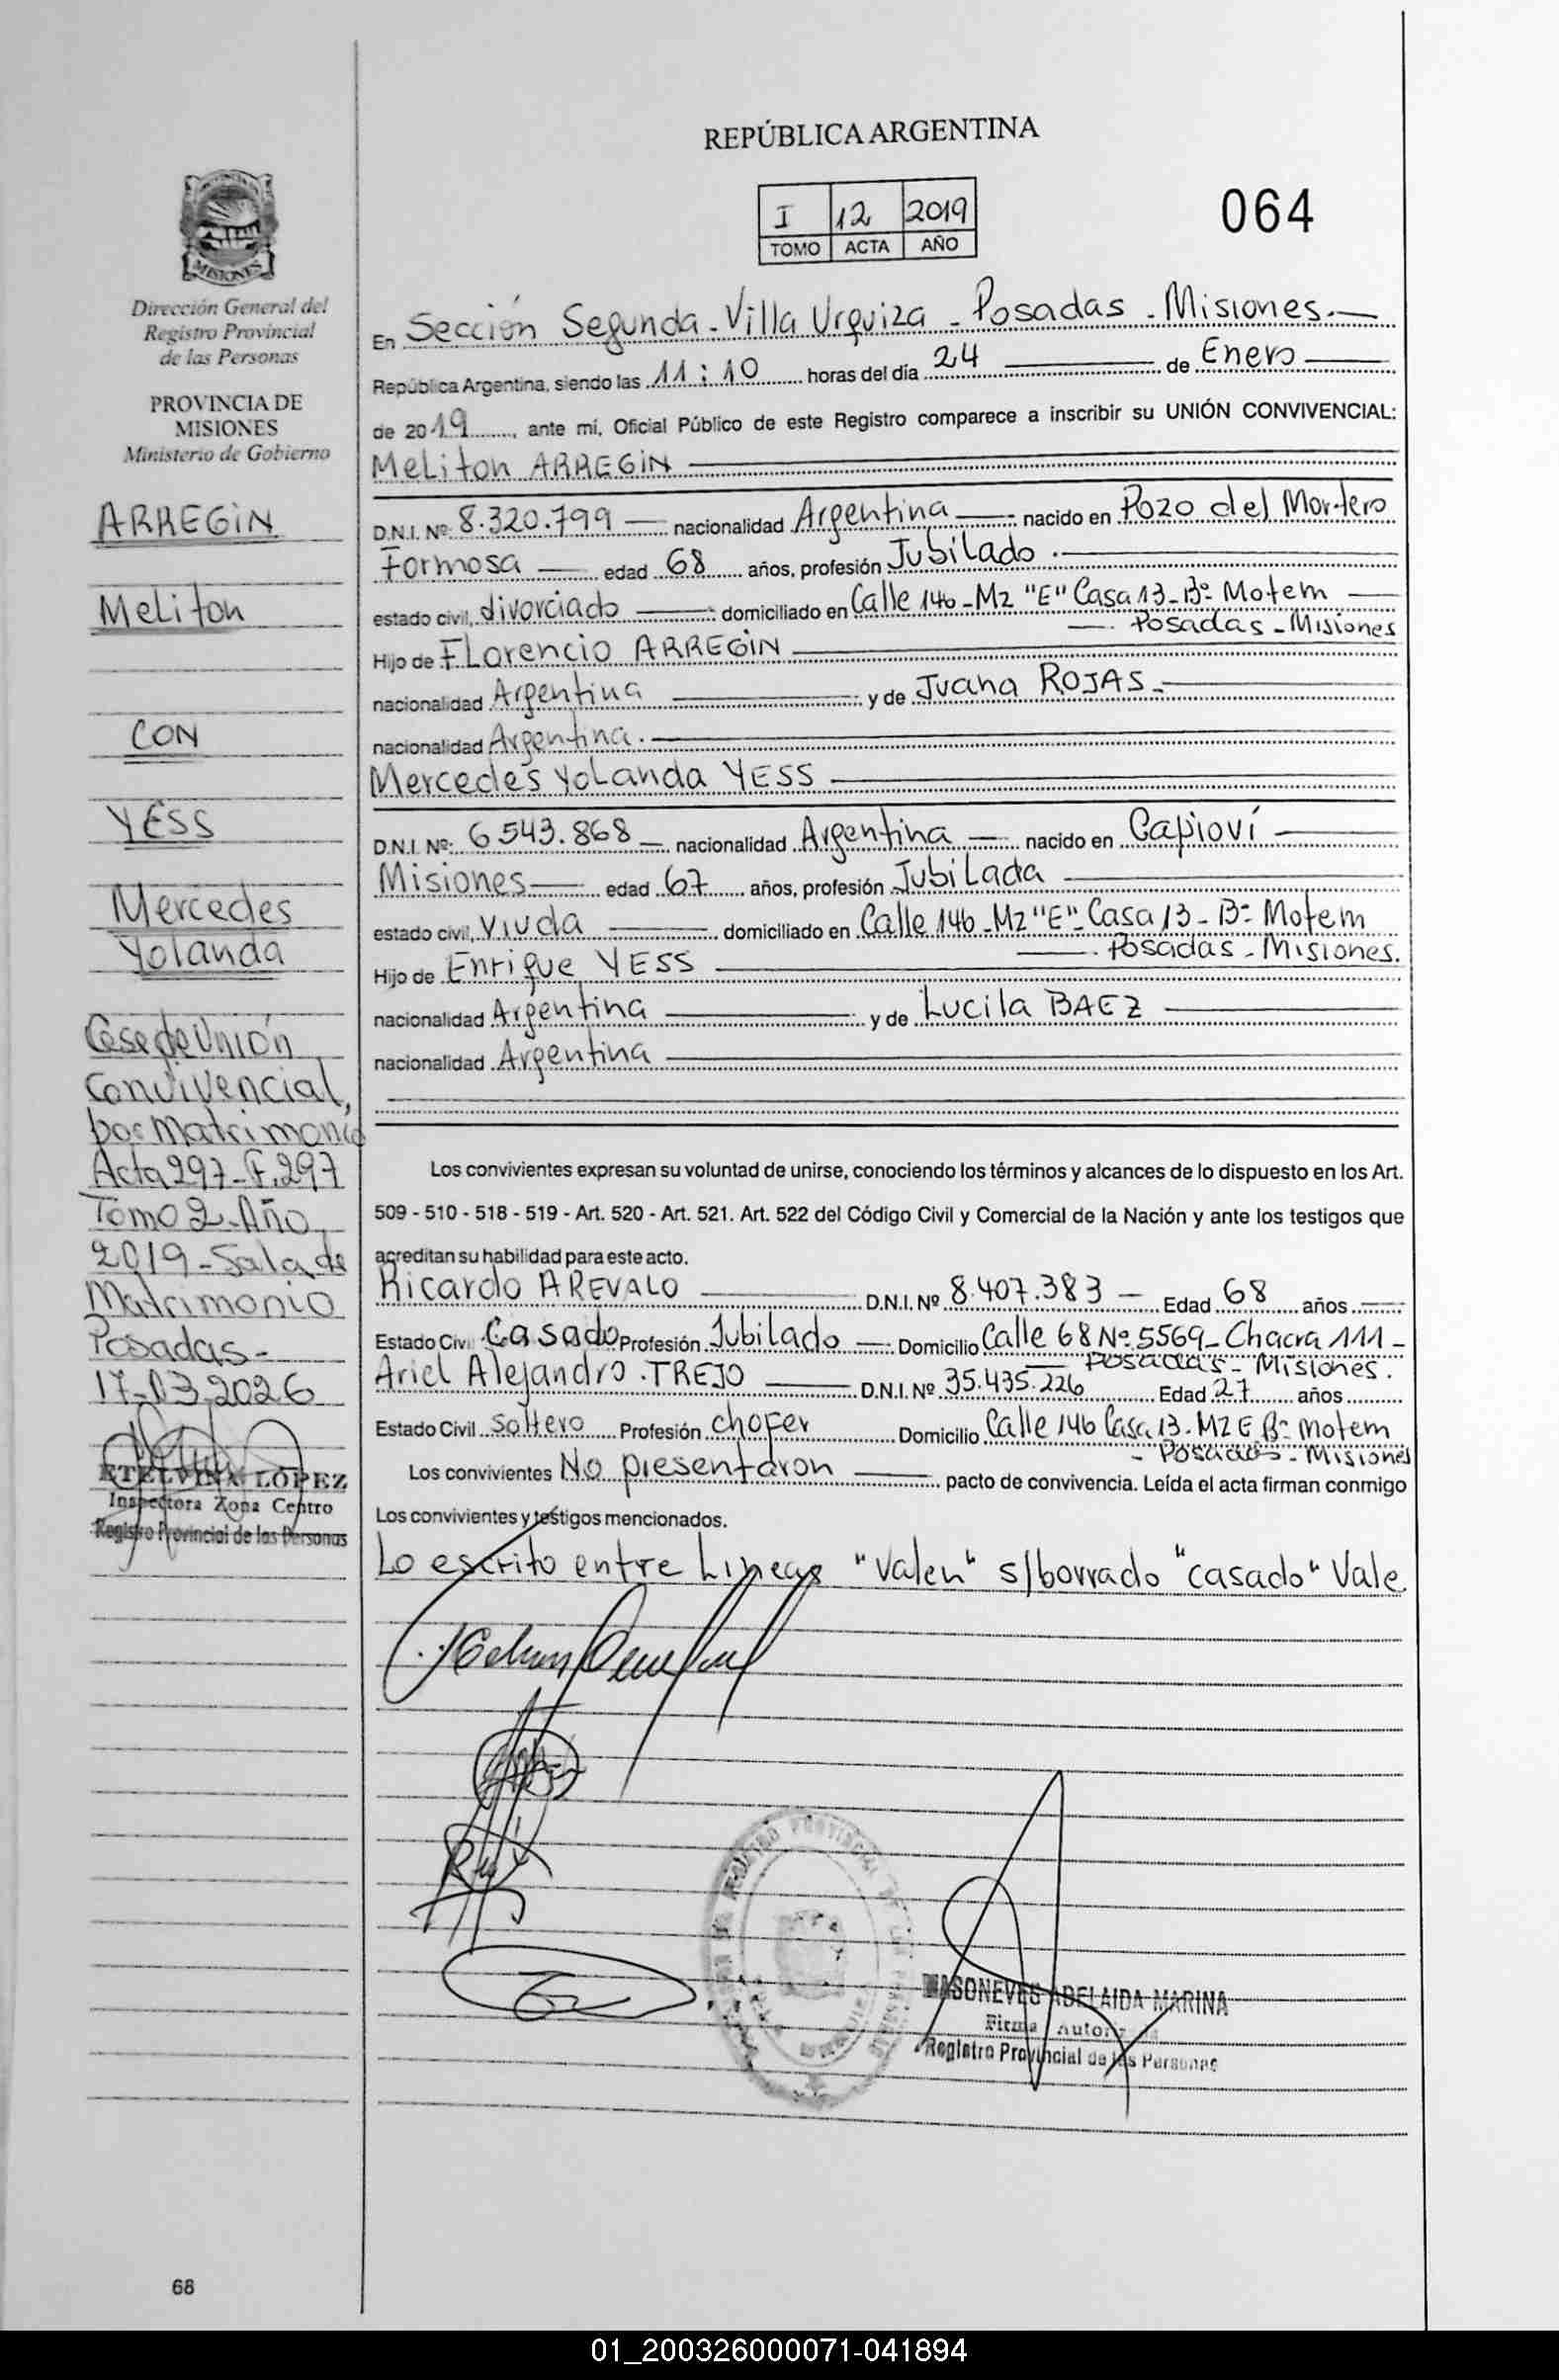 REPÚBLICA ARGENTINA
I 12 2019
TOMO ACTA AÑO
064
MISIONES
Dirección General del
Registro Provincial
de las Personas
PROVINCIA DE
MISIONES
Ministerio de Gobierno
ARREGIN
Meliton
CON
YESS
Mercedes
Yolanda
Cese de Unión
Convivencial,
por Matrimonio
Acta 297-F.297
Tomo 2-Año
2019-Sala de
Matrimonio
Posadas-
17-03-2026
ETELVINA LOPEZ
Inspectora Zona Centro
Registro Provincial de las Personas
En Sección Segunda-Villa Urquiza-Posadas-Misiones.-
República Argentina, siendo las 11:10 horas del día 24 de Enero
de 2019, ante mí, Oficial Público de este Registro comparece a inscribir su UNIÓN CONVIVENCIAL:
Meliton ARREGIN
D.N.I. Nº 8.320.799 nacionalidad Argentina nacido en Pozo del Mortero
Formosa edad 68 años, profesión Jubilado.
estado civil, divorciado domiciliado en Calle 146-Mz "E" Casa 13-Bº Motem
Posadas-Misiones
Hijo de Florencio ARREGIN
nacionalidad Argentina y de Juana ROJAS-
nacionalidad Argentina.
Mercedes Yolanda YESS
D.N.I. Nº: 6543.868 nacionalidad Argentina nacido en Capioví
Misiones edad 67 años, profesión Jubilada
estado civil, Viuda domiciliado en Calle 146-Mz "E"-Casa 13-Bº Motem
Posadas-Misiones.
Hijo de Enrique YESS
nacionalidad Argentina y de Lucila BAEZ
nacionalidad Argentina
Los convivientes expresan su voluntad de unirse, conociendo los términos y alcances de lo dispuesto en los Art.
509 - 510 - 518 - 519 - Art. 520 - Art. 521. Art. 522 del Código Civil y Comercial de la Nación y ante los testigos que
acreditan su habilidad para este acto.
Ricardo AREVALO D.N.I. Nº 8.407.383 Edad 68 años
Estado Civ. Casado Profesión Jubilado Domicilio Calle 68 Nº 5569-Chacra 111-
Posadas-Misiones.
Ariel Alejandro TREJO D.N.I. Nº 35.435.226 Edad 27 años
Estado Civil Soltero Profesión chofer Domicilio Calle 146 Casa 13-MZ E Bº Motem
-Posadas-Misiones
Los convivientes No presentaron pacto de convivencia. Leída el acta firman conmigo
Los convivientes y testigos mencionados.
Lo escrito entre Lineas "Valen" s/borrado "casado" Vale
MASONEVES ADELAIDA MARINA
Firma Autorizada
Registro Provincial de las Personas
68
01_200326000071-041894